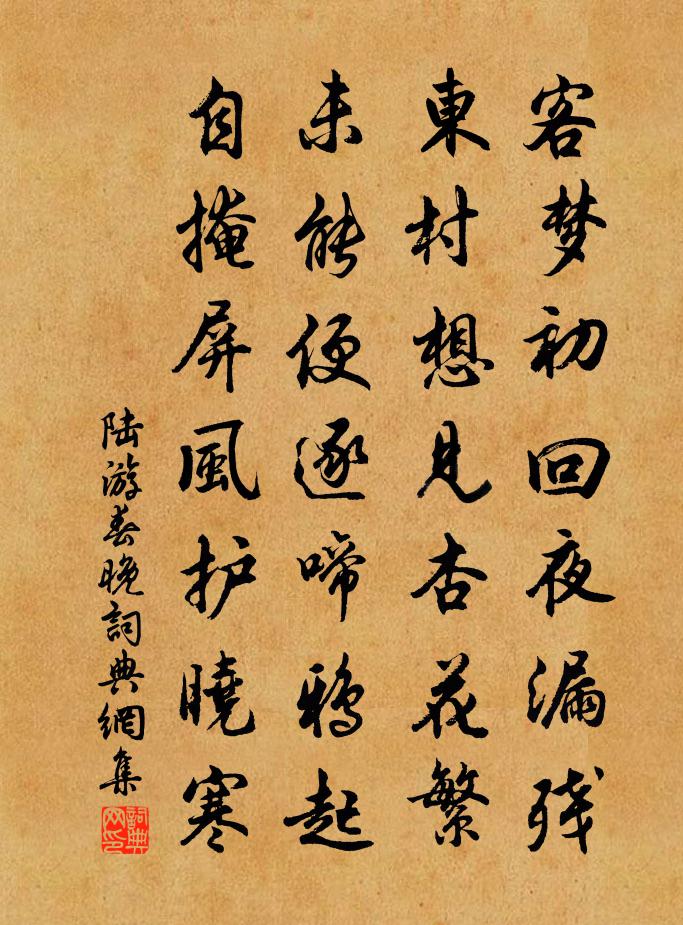 客梦初回夜漏残
東村想見杏花繁
未能便逐啼鴉起
自掩屏風护曉寒
陆游春晚詞典網集
詞典网印